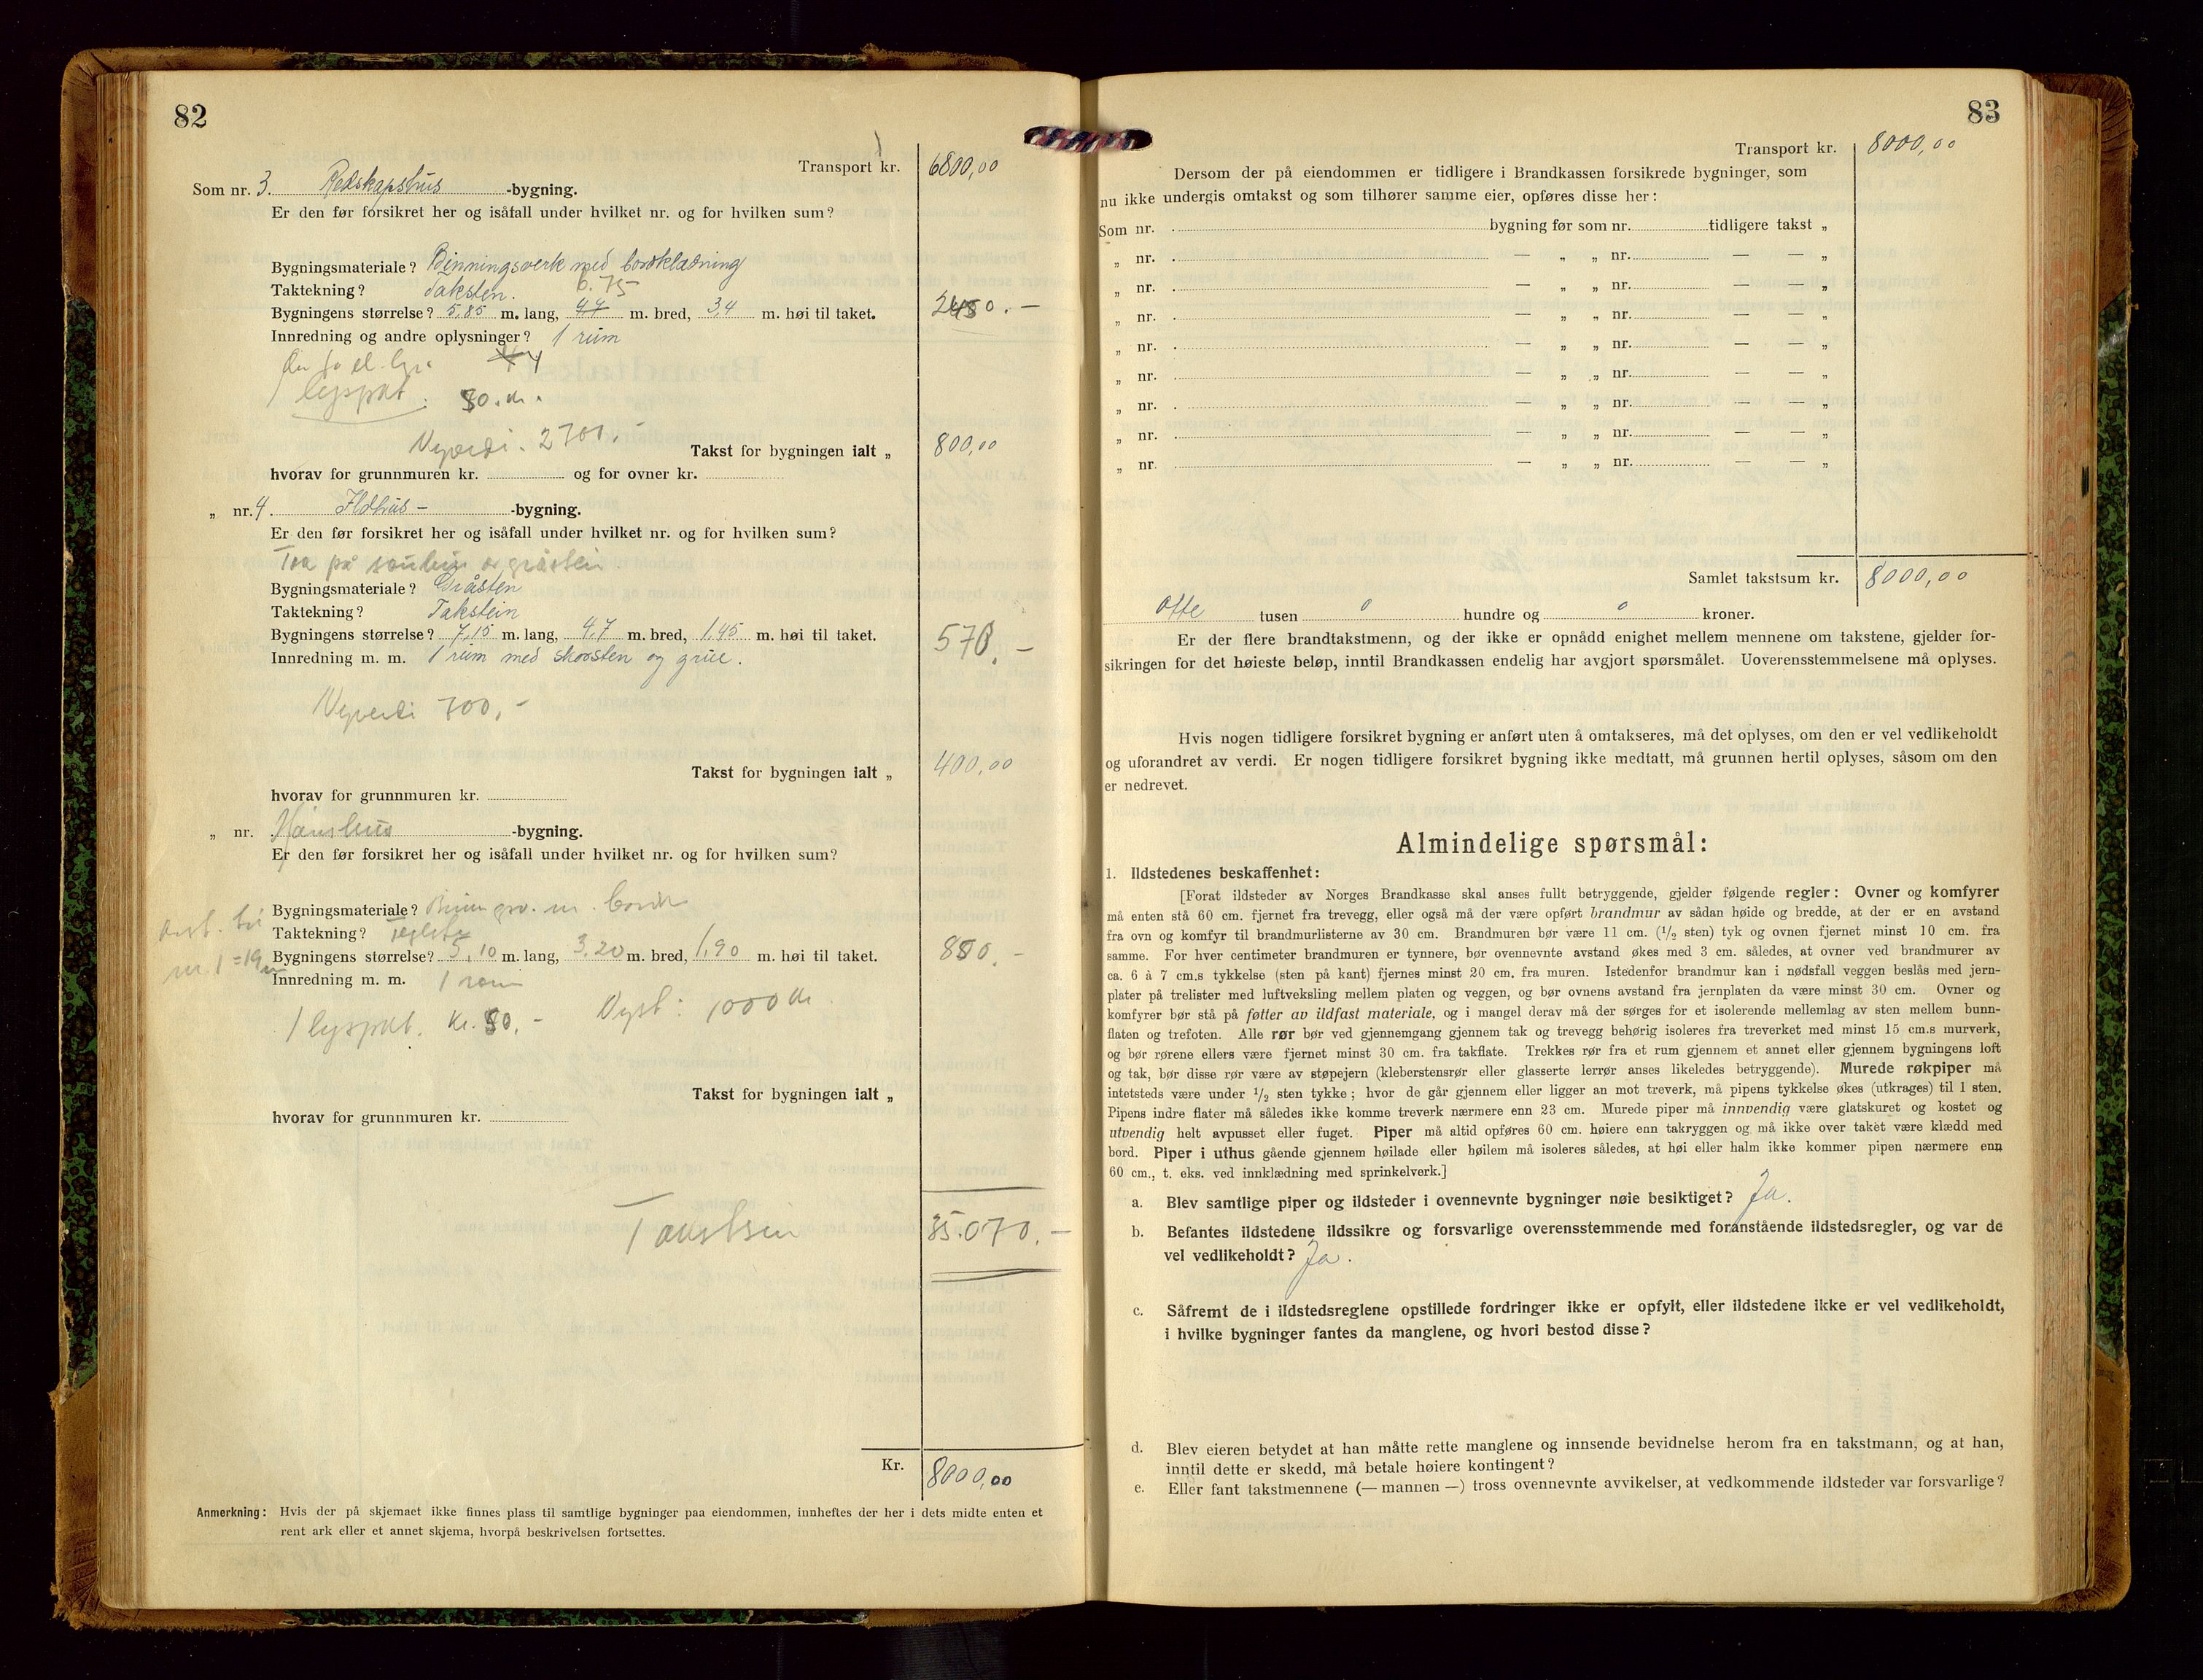 82
Transport kr. 6800,00
Som nr. 3. Redskapshus -bygning.
Er den før forsikret her og isåfall under hvilket nr. og for hvilken sum?
Bygningsmateriale? Binningsverk med bordklædning
Taktekning? Taksten. 6.75
Bygningens størrelse? 5,85 m. lang, 4,7 m. bred, 3,4 m. høi til taket. 2450.-
Innredning og andre oplysninger? 1 rum
el. 4
1 lyspkt. 50.kr.
Nyverdi. 2700,-
Takst for bygningen ialt „ 800,00
hvorav for grunnmuren kr. og for ovner kr.
„ nr. 4. Ildhus- -bygning.
Er den før forsikret her og isåfall under hvilket nr. og for hvilken sum?
på gråstein.
Bygningsmateriale? Gråsten
Taktekning? Takstein
Bygningens størrelse? 7,15 m. lang, 4,7 m. bred, 1,45 m. høi til taket. 570.-
Innredning m. m. 1 rum med skorsten og grue.
Nyverdi 700,-
Takst for bygningen ialt „ 400,00
hvorav for grunnmuren kr.
„ nr. Hønsehus -bygning.
Er den før forsikret her og isåfall under hvilket nr. og for hvilken sum?
Bygningsmateriale? m. bordk
Avst. til
Taktekning? teglst.
Bygningens størrelse? 5,10 m. lang, 3,20 m. bred, 1,90 m. høi til taket. 850.-
nr. 1 = 19 m
Innredning m. m. 1 rom
1 lyspkt. kr. 50,- Nyv: 1000 kr
Takst for bygningen ialt „
hvorav for grunnmuren kr.
35.070.-
Kr. 8000,00
Anmerkning: Hvis der på skjemaet ikke finnes plass til samtlige bygninger paa eiendommen, innheftes der her i dets midte enten et
rent ark eller et annet skjema, hvorpå beskrivelsen fortsettes.
83
Transport kr. 8000,00
Dersom der på eiendommen er tidligere i Brandkassen forsikrede bygninger, som
nu ikke undergis omtakst og som tilhører samme eier, opføres disse her:
Som nr. . bygning før som nr. tidligere takst „
„ nr. . — „ „ nr. — — „
„ nr. . — „ „ nr. — — „
„ nr. . — „ „ nr. — — „
„ nr. . — „ „ nr. — — „
„ nr. . — „ „ nr. — — „
„ nr. . — „ „ nr. — — „
„ nr. . — „ „ nr. — — „
„ nr. . — „ „ nr. — — „
Samlet takstsum kr. 8000,00
Otte tusen 0 hundre og 0 kroner.
Er der flere brandtakstmenn, og der ikke er opnådd enighet mellem mennene om takstene, gjelder for-
sikringen for det høieste beløp, inntil Brandkassen endelig har avgjort spørsmålet. Uoverensstemmelsene må oplyses.
Hvis nogen tidligere forsikret bygning er anført uten å omtakseres, må det oplyses, om den er vel vedlikeholdt
og uforandret av verdi. Er nogen tidligere forsikret bygning ikke medtatt, må grunnen hertil oplyses, såsom om den
er nedrevet.
Almindelige spørsmål:
1. Ildstedenes beskaffenhet:
[Forat ildsteder av Norges Brandkasse skal anses fullt betryggende, gjelder følgende regler: Ovner og komfyrer
må enten stå 60 cm. fjernet fra trevegg, eller også må der være opført brandmur av sådan høide og bredde, at der er en avstand
fra ovn og komfyr til brandmurlisterne av 30 cm. Brandmuren bør være 11 cm. (1/2 sten) tyk og ovnen fjernet minst 10 cm. fra
samme. For hver centimeter brandmuren er tynnere, bør ovennevnte avstand økes med 3 cm. således, at ovner ved brandmurer av
ca. 6 à 7 cm.s tykkelse (sten på kant) fjernes minst 20 cm. fra muren. Istedenfor brandmur kan i nødsfall veggen beslås med jern-
plater på trelister med luftveksling mellem platen og veggen, og bør ovnens avstand fra jernplaten da være minst 30 cm. Ovner og
komfyrer bør stå på føtter av ildfast materiale, og i mangel derav må der sørges for et isolerende mellemlag av sten mellem bunn-
flaten og trefoten. Alle rør bør ved gjennemgang gjennem tak og trevegg behørig isoleres fra treverket med minst 15 cm.s murverk,
og bør rørene ellers være fjernet minst 30 cm. fra takflate. Trekkes rør fra et rum gjennem et annet eller gjennem bygningens loft
og tak, bør disse rør være av støpejern (kleberstensrør eller glasserte lerrør anses likeledes betryggende). Murede røkpiper må
intetsteds være under 1/2 sten tykke; hvor de går gjennem eller ligger an mot treverk, må pipens tykkelse økes (utkrages) til 1 sten.
Pipens indre flater må således ikke komme treverk nærmere enn 23 cm. Murede piper må innvendig være glatskuret og kostet og
utvendig helt avpusset eller fuget. Piper må altid opføres 60 cm. høiere enn takryggen og må ikke over taket være klædd med
bord. Piper i uthus gående gjennem høilade eller høilem må isoleres således, at høi eller halm ikke kommer pipen nærmere enn
60 cm., t. eks. ved innklædning med sprinkelverk.]
a. Blev samtlige piper og ildsteder i ovennevnte bygninger nøie besiktiget? Ja.
b. Befantes ildstedene ildssikre og forsvarlige overensstemmende med foranstående ildstedsregler, og var de
vel vedlikeholdt? Ja.
c. Såfremt de i ildstedsreglene opstillede fordringer ikke er opfylt, eller ildstedene ikke er vel vedlikeholdt,
i hvilke bygninger fantes da manglene, og hvori bestod disse?
d. Blev eieren betydet at han måtte rette manglene og innsende bevidnelse herom fra en takstmann, og at han,
inntil dette er skedd, må betale høiere kontingent?
e. Eller fant takstmennene (— mannen —) tross ovennevnte avvikelser, at vedkommende ildsteder var forsvarlige?